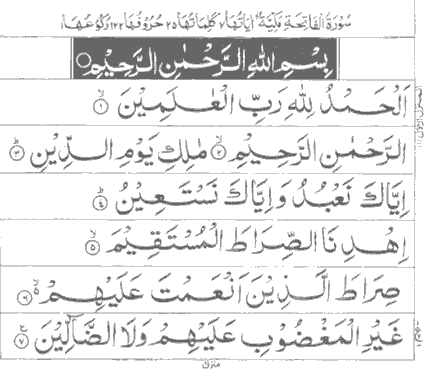 سُوْرَةُ الْفَاتِحَةِ مَكِّيَّةٌ اٰيَاتُهَا ٧ كَلِمَاتُهَا ٢٥ حُرُوْفُهَا ١٢٢ رُكُوْعُهَا ١
بِسْمِ اللهِ الرَّحْمٰنِ الرَّحِيْمِ
اَلْحَمْدُ لِلّٰهِ رَبِّ الْعٰلَمِيْنَ ۙ ١
الرَّحْمٰنِ الرَّحِيْمِ ۙ ٢ مٰلِكِ يَوْمِ الدِّيْنِ ؕ ٣
اِيَّاكَ نَعْبُدُ وَاِيَّاكَ نَسْتَعِيْنُ ؕ ٤
اِهْدِنَا الصِّرَاطَ الْمُسْتَقِيْمَ ۙ ٥
صِرَاطَ الَّذِيْنَ اَنْعَمْتَ عَلَيْهِمْ ۙ ٦
غَيْرِ الْمَغْضُوْبِ عَلَيْهِمْ وَلَا الضَّآلِّيْنَ ٧
منزل